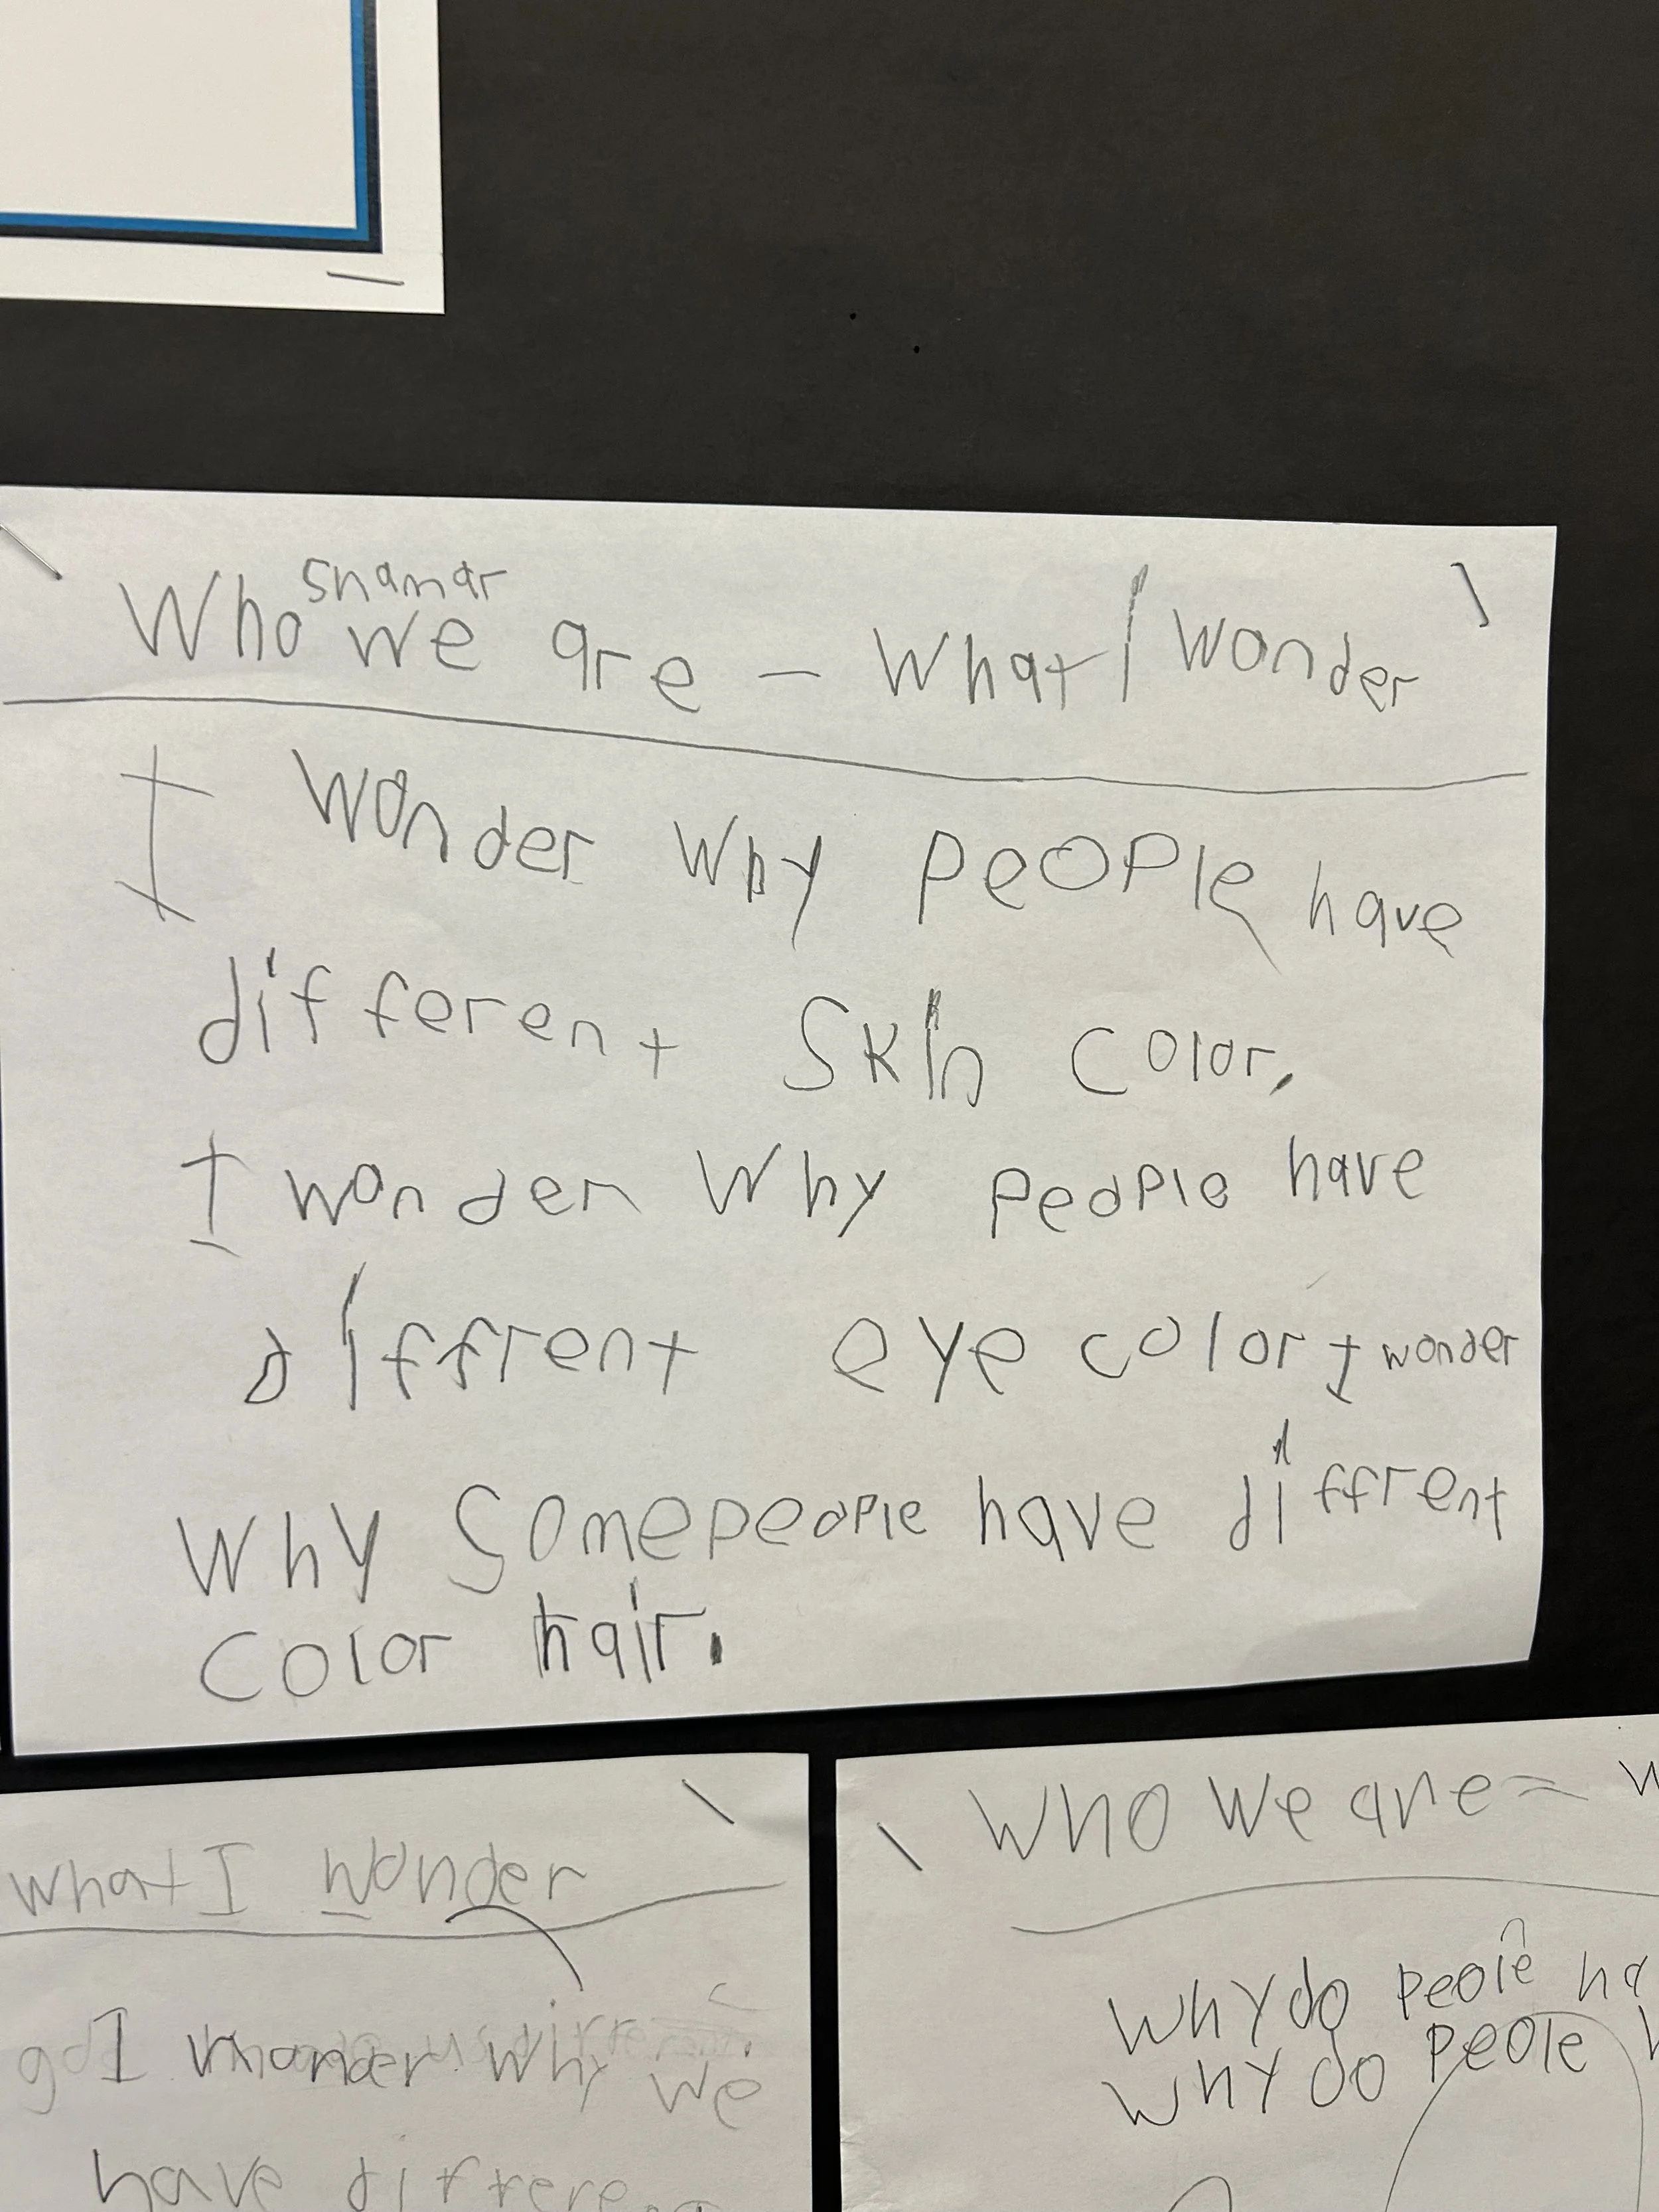 Shamar
Who we are - What I wonder
I wonder Why PeoPle have
different Skin Color.
I wonder Why PeoPle have
diffrent eye color I wonder
Why Somepeople have diffrent
Color hair.
what I wonder
I wonder why we
have differen
Who We are =
Why do peole ha
Why do peole